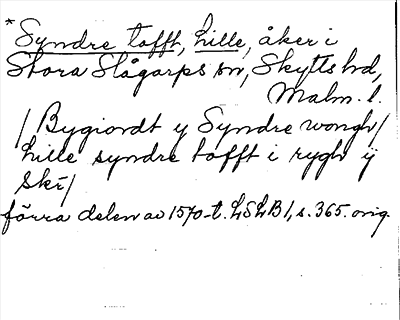 * Syndre tofft, hille, åker i
Stora Slågarps sn, Skytts hd,
Malm. l.
/ Bygiordt y Syndre wongh/
hille syndre tofft i rygh ij
Ské/
förra delen av 1570-t. LSLB 1, s. 365. orig.